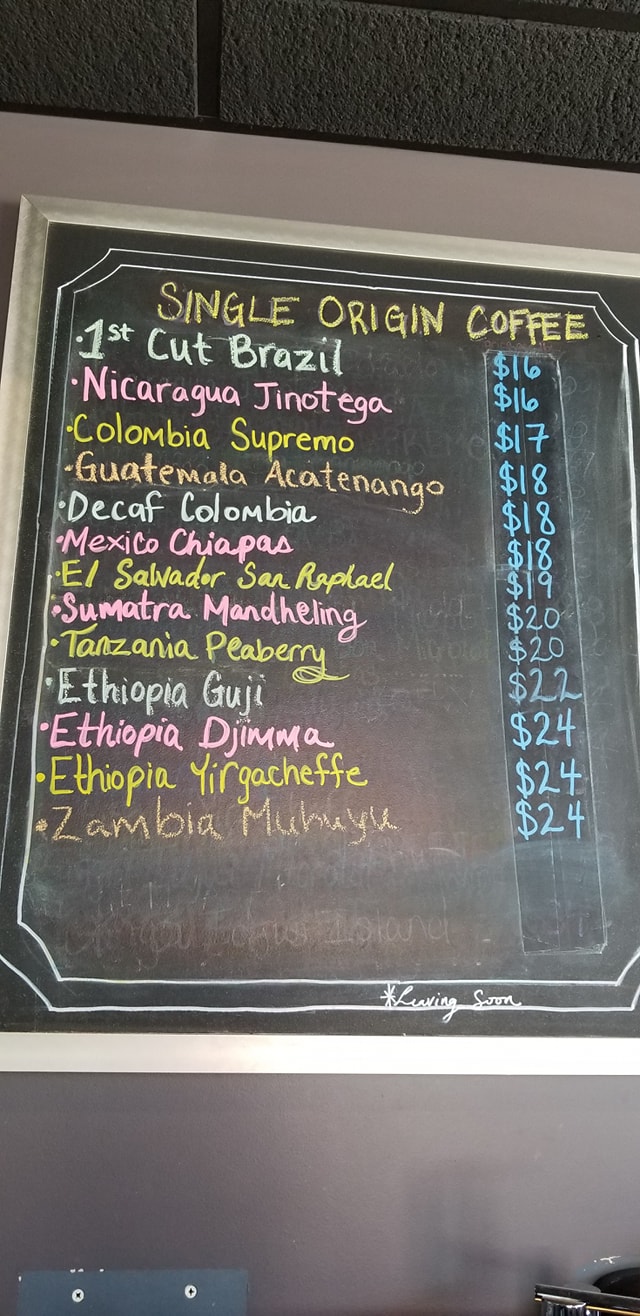 SINGLE ORIGIN COFFEE
·1st Cut Brazil $16
·Nicaragua Jinotega $16
·Colombia Supremo $17
·Guatemala Acatenango $18
·Decaf Colombia $18
·Mexico Chiapas $18
·El Salvador San Raphael $19
·Sumatra Mandheling $20
·Tanzania Peaberry $20
·Ethiopia Guji $22
·Ethiopia Djimma $24
·Ethiopia Yirgacheffe $24
·Zambia Muhuyu $24
*Leaving Soon